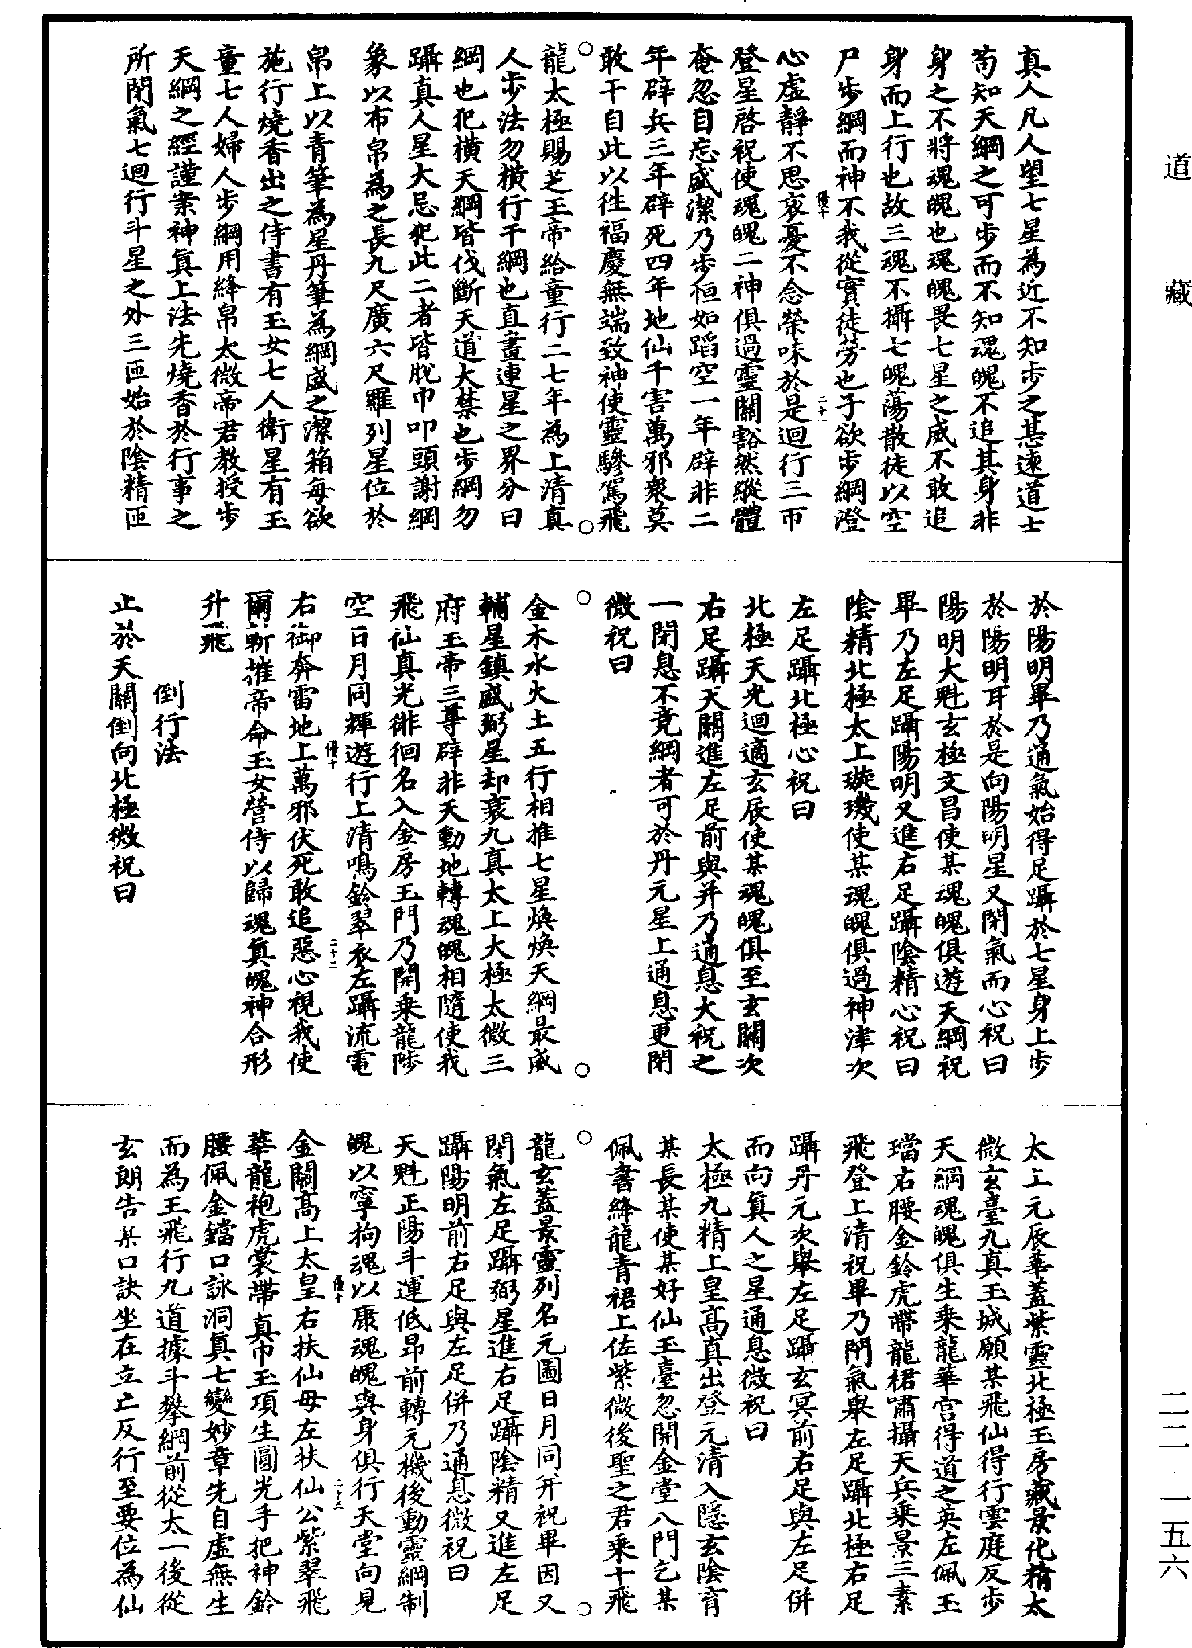 道藏
真人凡人望七星為近不知步之甚速道士
苟知天綱之可步而不知魂魄不追其身非
身之不將魂魄也魂魄畏七星之威不敢追
身而上行也故三魂不攝七魄蕩散徒以空
尸步綱而神不我從實徒勞也子欲步綱澄
二十一
心虛靜不思哀憂不念榮味於是迴行三帀
登星啓祝使魂魄二神俱過靈關豁然縱體
奄忽自忘盛潔乃步恒如蹈空一年辟非二
年辟兵三年辟死四年地仙千害萬邪衆莫
敢干自此以徃福慶無端致神使靈驂駕飛
龍太極賜芝玉帝給童行二七年為上清真
人步法勿橫行干綱也直畫連星之界分曰
綱也犯橫天綱皆伐斷天道大禁也步綱勿
躡真人星大忌犯此二者皆脫巾叩頭謝綱
象以布帛為之長九尺廣六尺羅列星位於
帛上以青筆為星丹筆為綱盛之潔箱每欲
施行燒香出之侍書有玉女七人衛星有玉
童七人婦人步綱用絳帛太微帝君教授步
天綱之經謹案神真上法先燒香於行事之
所閉氣七迴行斗星之外三匝始於陰精匝
於陽明畢乃通氣始得足躡於七星身上步
於陽明耳於是向陽明星又閉氣而心祝曰
陽明大魁玄極文昌使某魂魄俱遊天綱祝
畢乃左足躡陽明又進右足躡陰精心祝曰
陰精北極太上璇璣使某魂魄俱過神津次
左足躡北極心祝曰
北極天光迴適玄辰使某魂魄俱至玄關次
右足躡天關進左足前與并乃通息大祝之
一閉息不竟綱者可於丹元星上通息更閉
微祝曰
金木水火土五行相推七星煥煥天綱最威
輔星鎮盛弼星却衰九真太上大極太微三
府玉帝三尊辟非天動地轉魂魄相隨使我
飛仙真光徘徊名入金房玉門乃開乘龍陟
空日月同輝遊行上清鳴鈴翠衣左躡流電
二十二
右御奔雷地上萬邪伏死敢追惡心視我使
爾斬摧帝命玉女營侍以歸魂真魄神合形
升飛
倒行法
止於天關倒向北極微祝曰
太上元辰華蓋紫靈北極玉房藏景化精太
微玄臺九真玉城願某飛仙得行雲庭反步
天綱魂魄俱生乘龍華宮得道之英左佩玉
璫右腰金鈴虎帶龍裙嘯攝天兵乘景三素
飛登上清祝畢乃閉氣舉左足躡北極右足
躡丹元次舉左足躡玄冥前右足與左足併
而向真人之星通息微祝曰
太極九精上皇高真出登元清入隱玄陰育
某長某使某好仙玉臺忽開金堂八門乞某
佩書絳龍青裙上佐紫微後聖之君乘十飛
龍玄蓋景靈列名元圖日月同幵祝畢因又
閉氣左足躡弼星進右足躡陰精又進左足
躡陽明前右足與左足併乃通息微祝曰
天魁正陽斗運低昂前轉元機後動靈綱制
魄以寧拘魂以康魂魄與身俱行天堂向見
二十三
金關高上太皇右扶仙母左扶仙公紫翠飛
華龍袍虎裳帶真巾玉項生圓光手把神鈴
腰佩金鐺口詠洞真七變妙章先自虛無生
而為王飛行九道據斗攀綱前從太一後從
玄朗告某口訣坐在立亡反行至要位為仙
二二 一五六